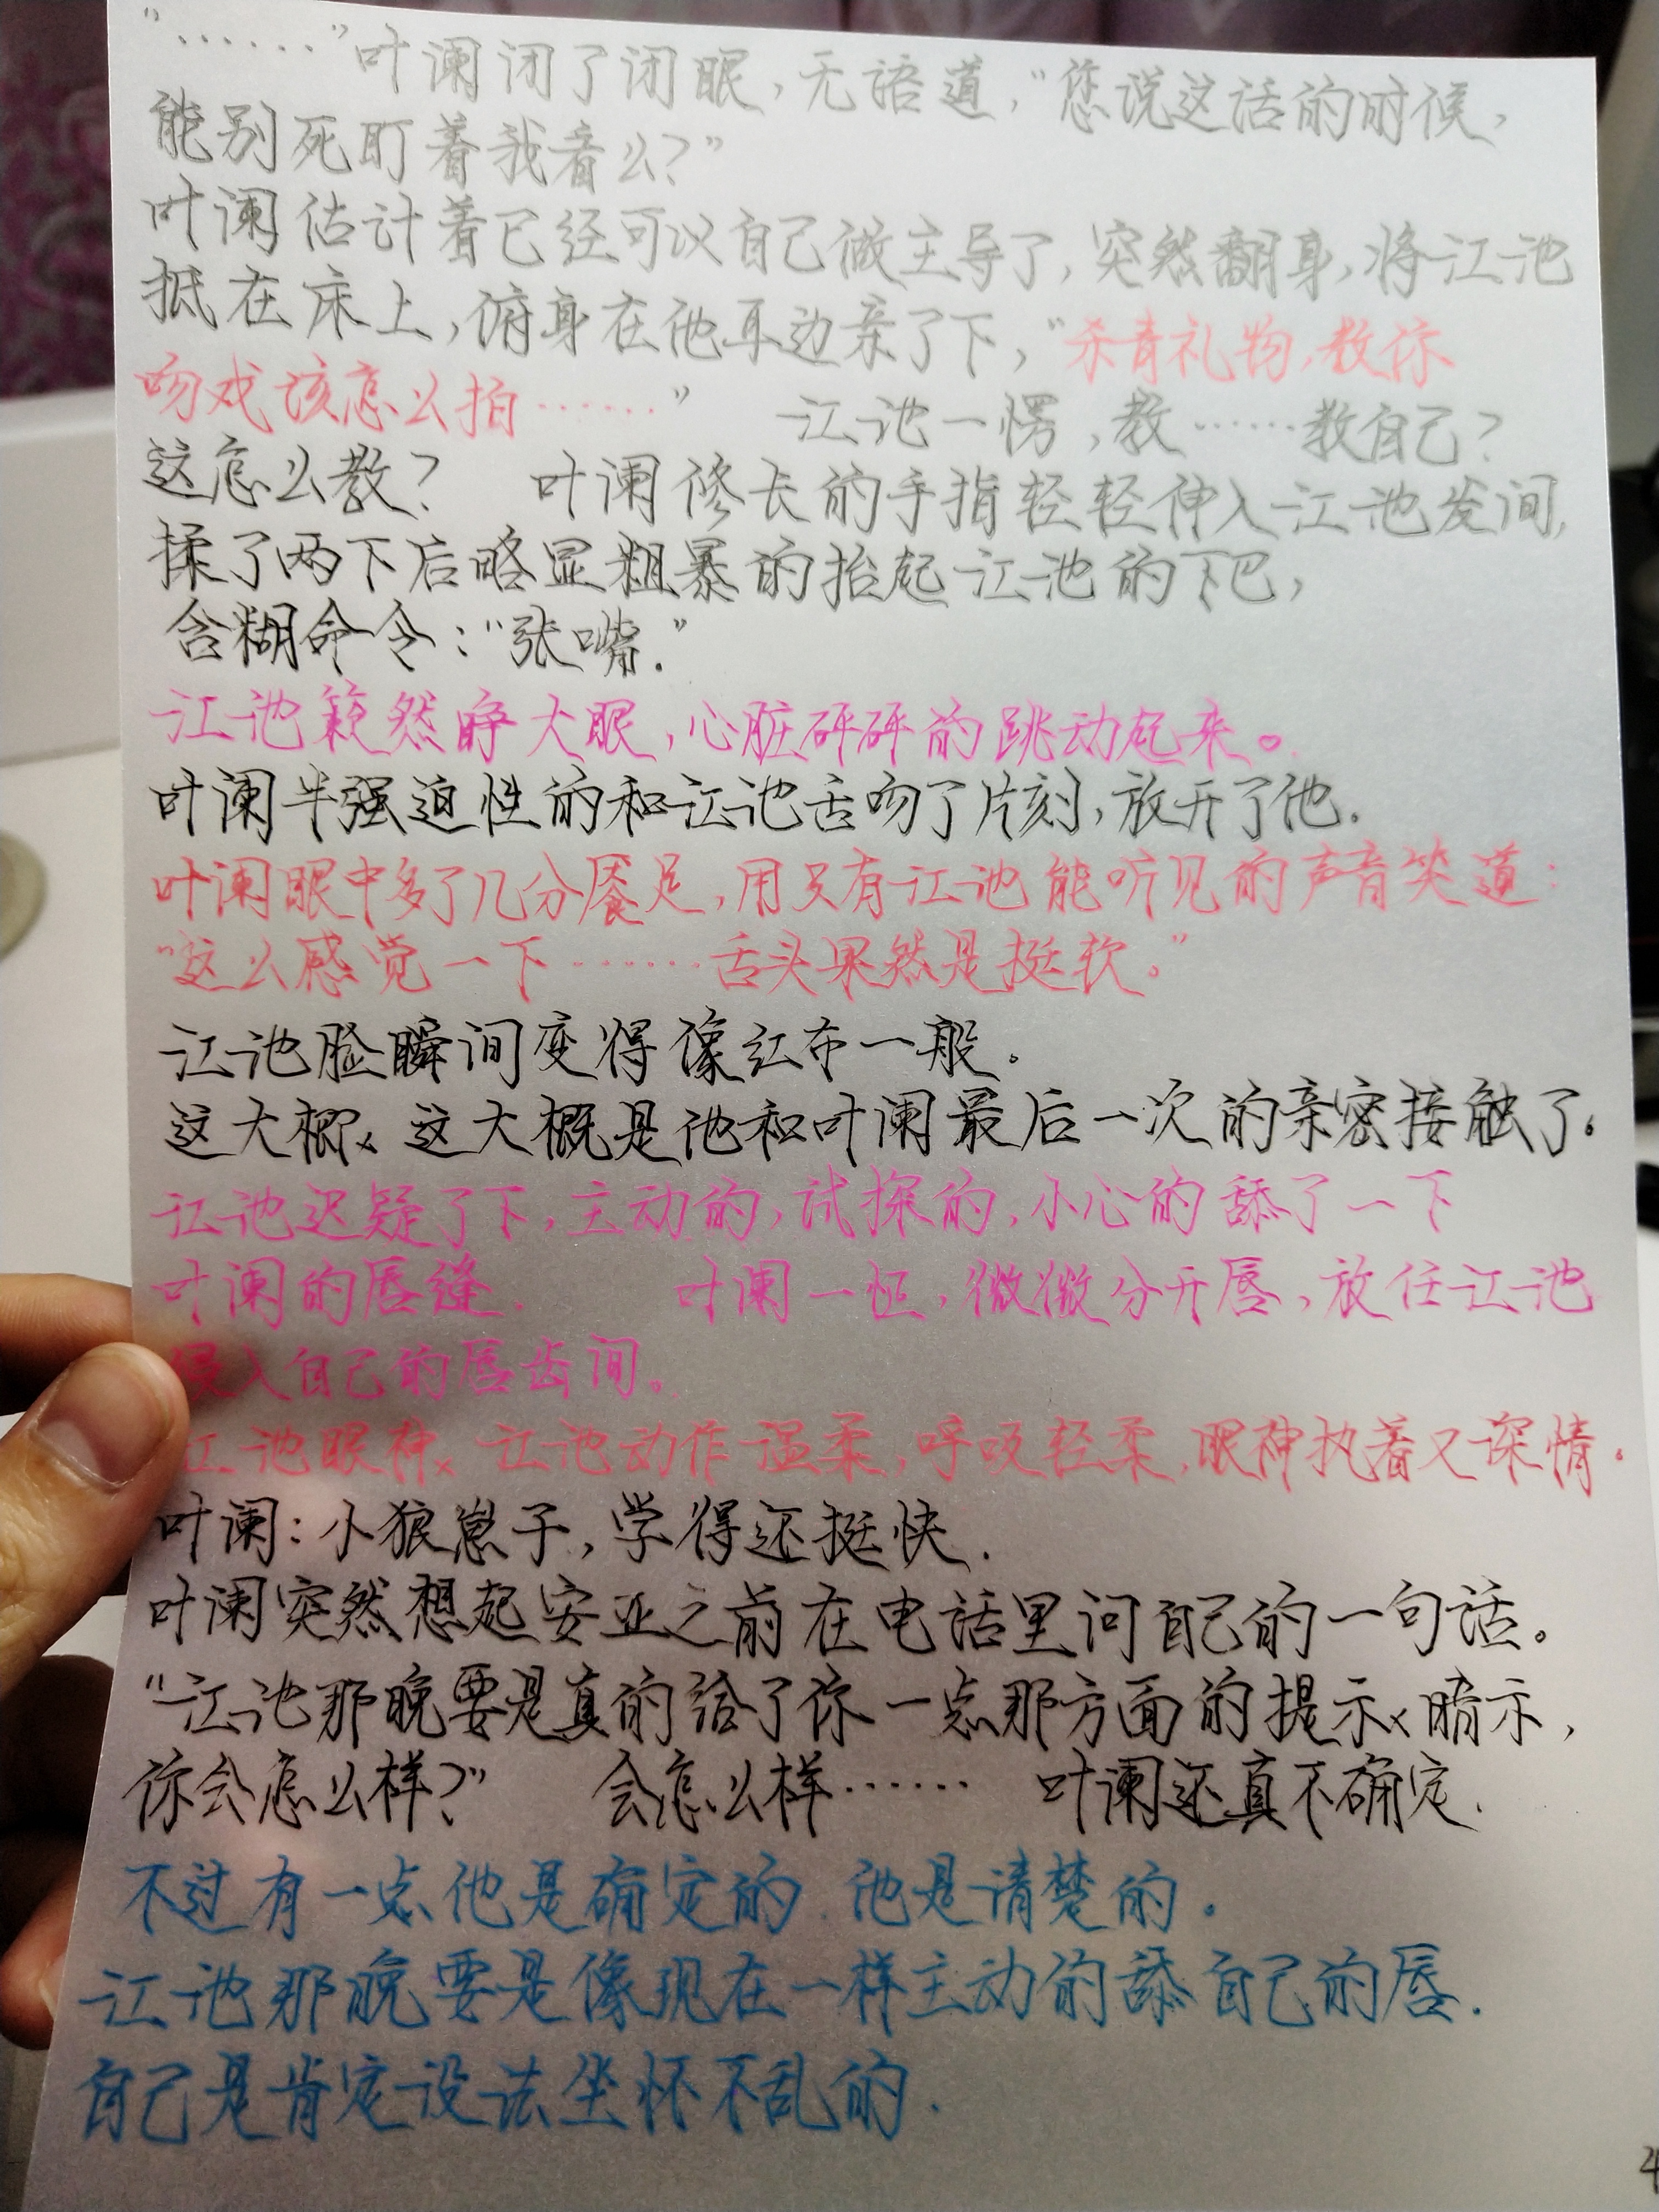 “……”叶阑闭了闭眼，无语道，“您说这话的时候，
能别死盯着我看么？”
叶阑估计着已经可以自己做主导了，突然翻身，将江池
抵在床上，俯身在他耳边亲了下，“杀青礼物，教你
吻戏该怎么拍……” 江池一愣，教……教自己？
这怎么教？ 叶阑修长的手指轻轻伸入江池发间，
揉了两下后略显粗暴的抬起江池的下巴，
含糊命令：“张嘴.”
江池簌然睁大眼，心脏砰砰的跳动起来。
叶阑半强迫性的和江池舌吻了片刻，放开了他.
叶阑眼中多了几分餍足，用只有江池能听见的声音笑道：
“这么感觉一下……舌头果然是挺软。”
江池脸瞬间变得像红布一般。
这大概x 这大概是他和叶阑最后一次的亲密接触了。
江池迟疑了下，主动的，试探的，小心的舔了一下
叶阑的唇缝. 叶阑一怔，微微分开唇，放任江池
侵入自己的唇齿间。
江池眼神x 江池动作温柔，呼吸轻柔，眼神执着又深情。
叶阑：小狼崽子，学得还挺快.
叶阑突然想起安亚之前在电话里问自己的一句话。
“江池那晚要是真的给了你一点那方面的提示x暗示，
你会怎么样？” 会怎么样…… 叶阑还真不确定.
不过有一点他是确定的. 他是清楚的.
江池那晚要是像现在一样主动的舔自己的唇.
自己是肯定没法坐怀不乱的.